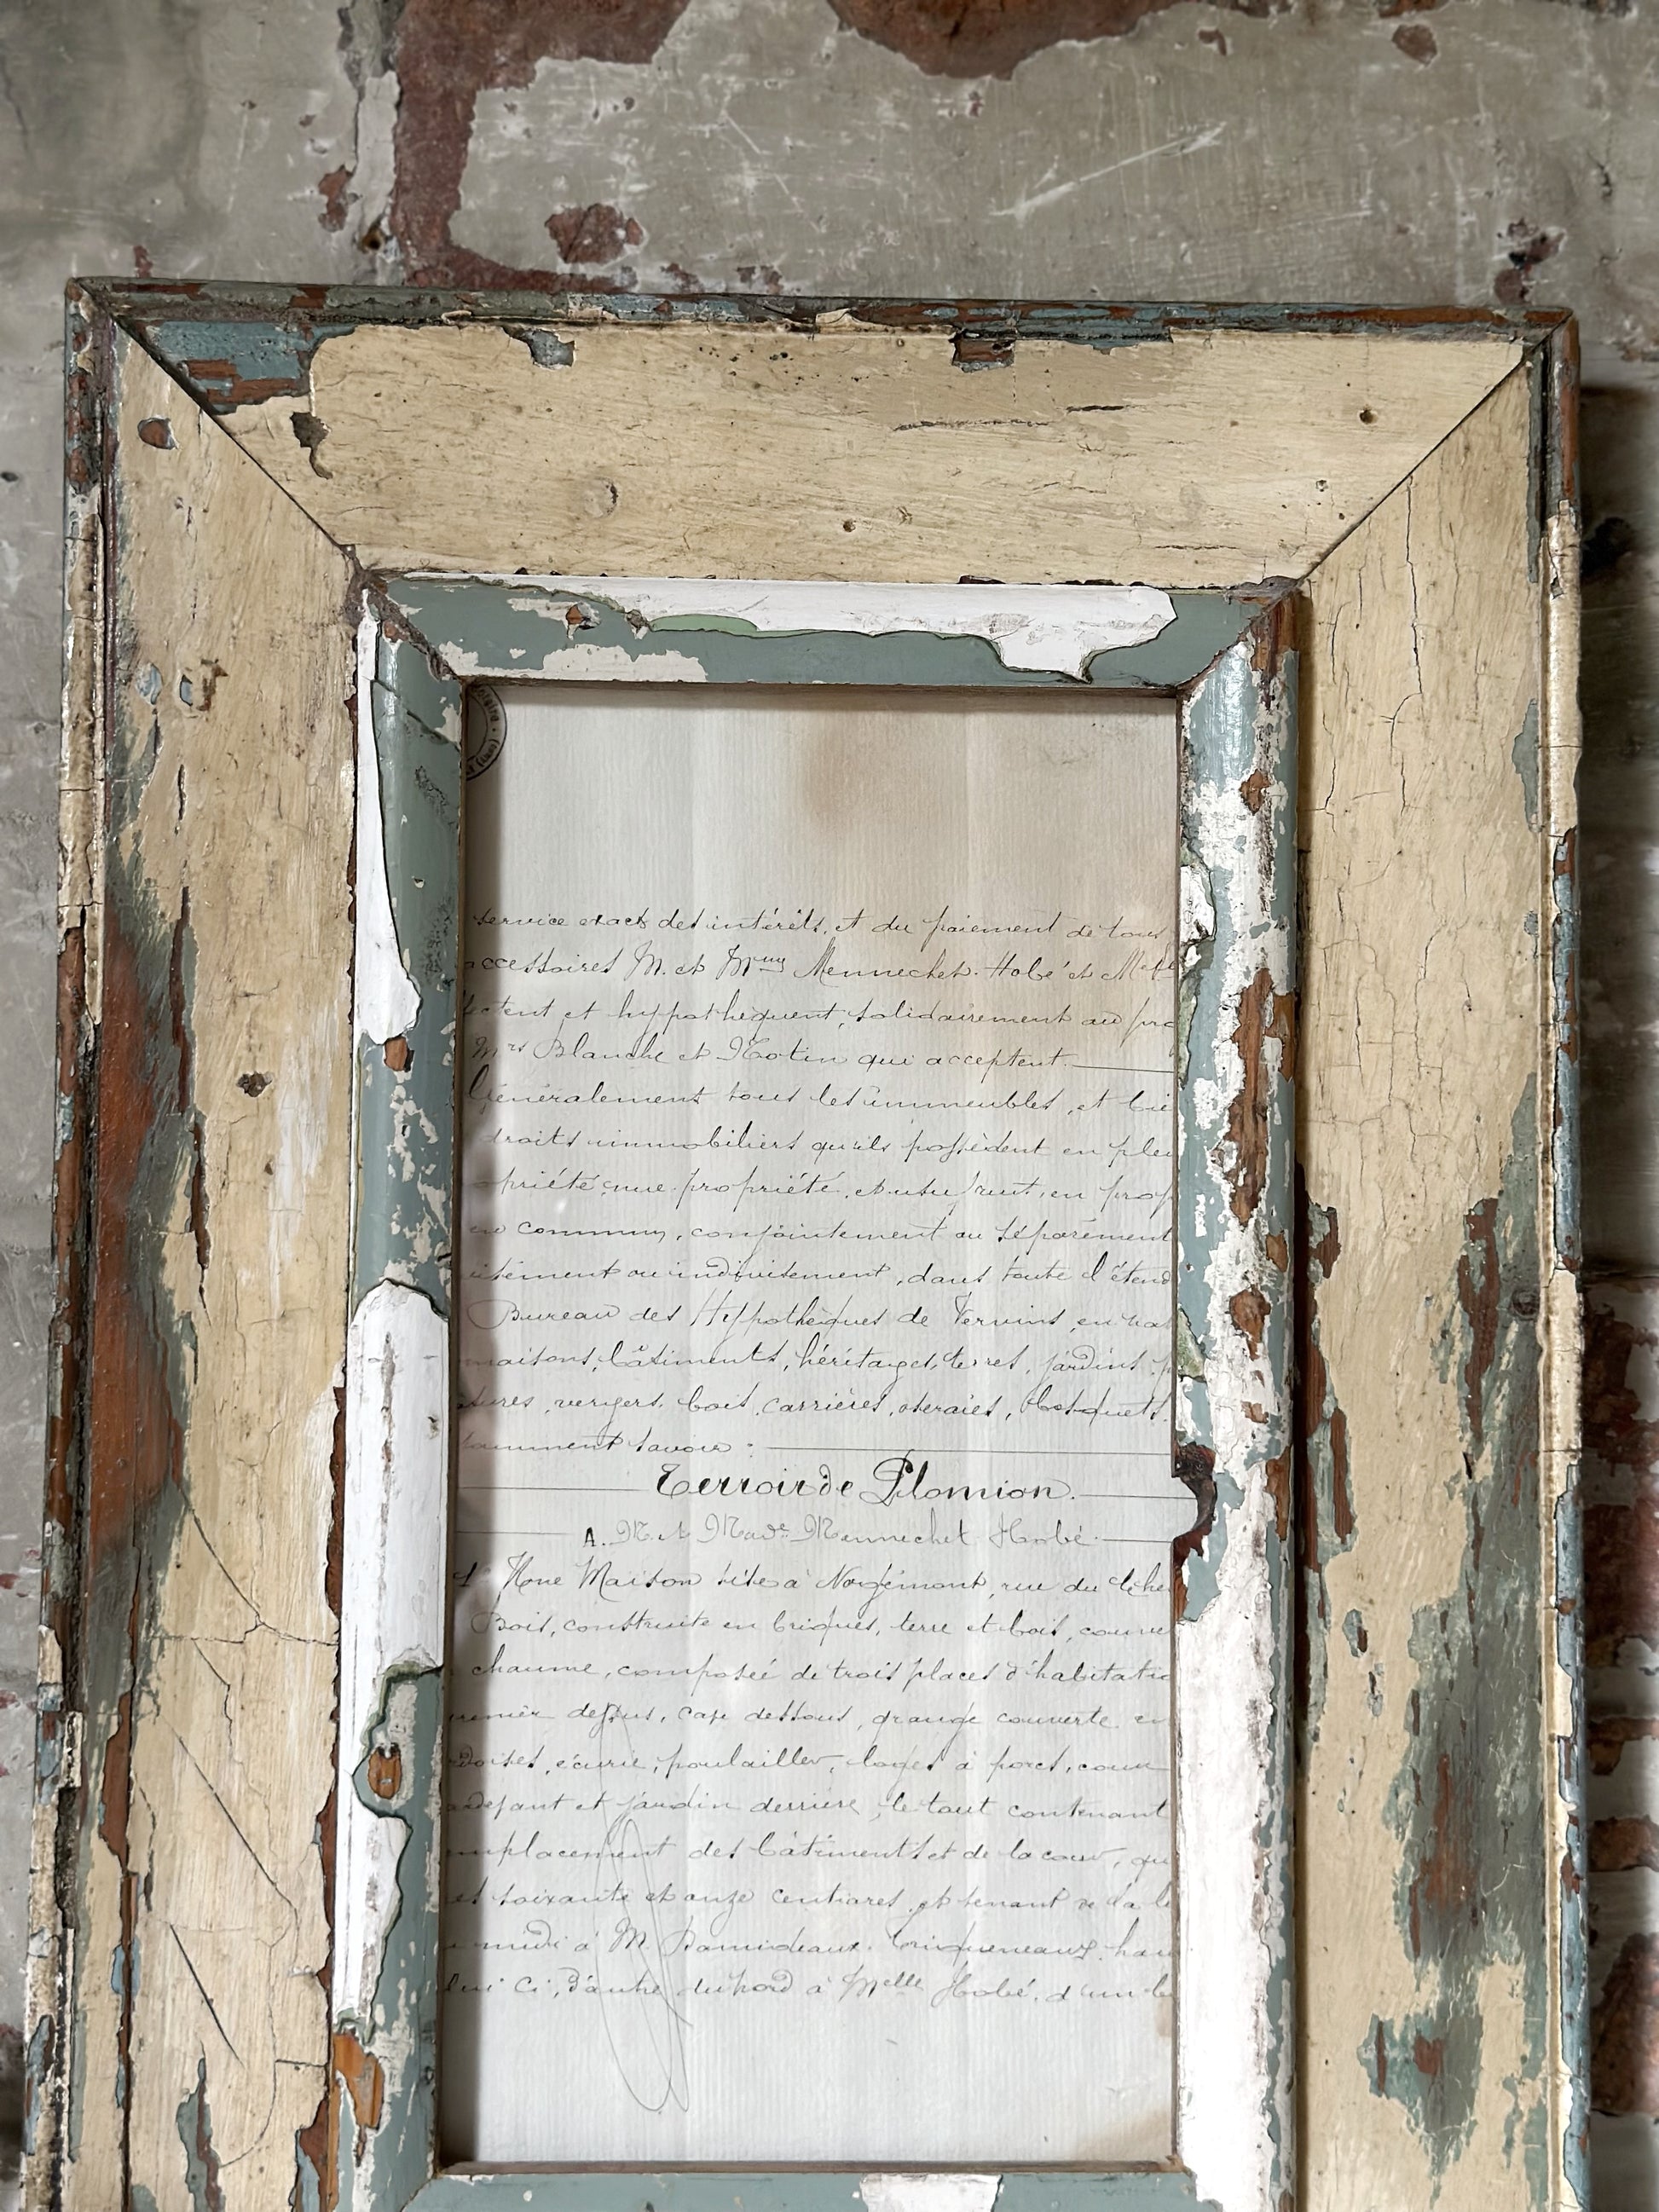 service exact des intérêts, et du paiement de tous
accessoires M. et Mme Mennechet-Hobé et Melle
fectent et hypothèquent, solidairement au pro
Mrs Blanche et Notin qui acceptent.
Généralement tous les immeubles, et bie
droits immobiliers qu'ils possèdent en plei
opriété, nue-propriété, et usufruit, en prop
en commun, conjointement ou séparément
isément ou indivisément, dans toute l'étend
Bureau des Hypothèques de Vervins, en nat
maisons, bâtiments, héritages, terres, jardins, p
tures, vergers, bois, carrières, oseraies, bosquets,
tamment savoir :
Terroir de Plomion.
A. M. et Made Mennechet Hobé.
1° Une Maison sise à rue du
Bois, construite en briques, terre et bois, couve
chaume, composée de trois places d'habitatio
renier dessus, cave dessous, grange couverte en
doises, écurie, poulailler, loges à porcs, cour
devant et jardin derrière, le tout contenant
mplacement des bâtiments et de la cour, qu
et soixante et onze centiares, et tenant de la le
midi à M.
lui ci, d'autre du nord à Melle Hobé, d'un b